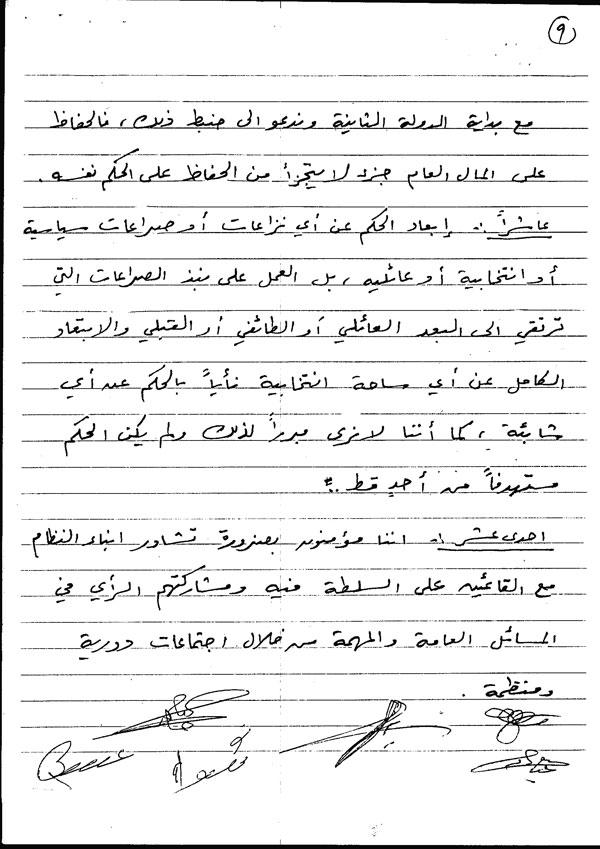 ٩
مع بداية الدولة الثانية وندعو الى ضبط ذلك، فالحفاظ
على المال العام جزء لا يتجزأ من الحفاظ على الحكم نفسه.
عاشراً :- إبعاد الحكم عن أي نزاعات أو صراعات سياسية
أو انتخابية أو عائليه، بل العمل على نبذ الصراعات التي
ترتقي الى البعد العائلي أو الطائفي أو القبلي والابتعاد
الكامل عن أي ساحة انتخابية نأياً بالحكم عن أي
شائبة، كما أننا لا نرى مبرراً لذلك ولم يكن الحكم
مستهدفاً من أحدٍ قط ..
احدى عشر :- اننا مؤمنون بضرورة تشاور ابناء النظام
مع القائمين على السلطة فيه ومشاركتهم الرأي في
المسائل العامة والمهمة من خلال اجتماعات دورية
ومنتظمة .